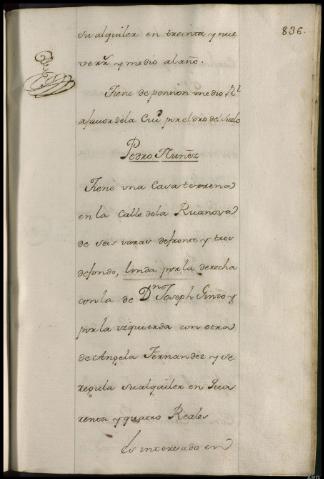 836.
su alquiler en treinta y nue
ve rr.s y medio al año.
Tiene de pension medio Rl
a favor dela Ciu.d por el dro del suelo
Pedro Nuñez
Tiene una Casa terrena
en la Calle dela Ruanova
de seis varas de frente y tres
de fondo, linda por la derecha
con la de Dn Joseph Gindo y
por la izquierda con otra
de Angela Fernandez y se
regula su alquiler en qua
renta y quatro Reales
Es interesado en